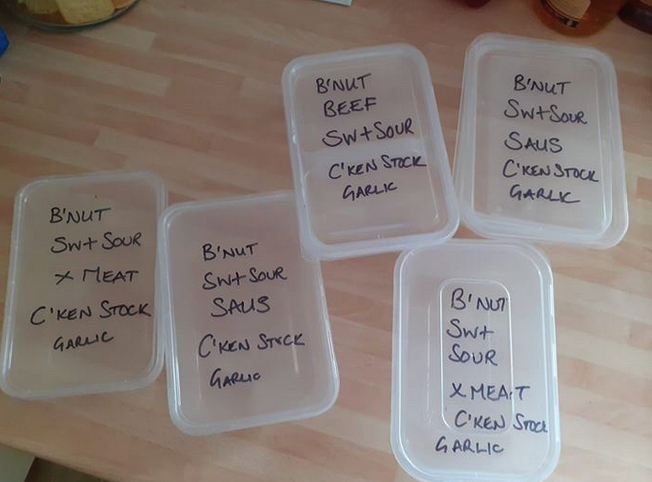 B'NUT
BEEF
SW+SOUR
C'KEN STOCK
GARLIC
B'NUT
SW+SOUR
SAUS
C'KEN STOCK
GARLIC
B'NUT
SW+ SOUR
X MEAT
C'KEN STOCK
GARLIC
B'NUT
SW+SOUR
SAUS
C'KEN STOCK
GARLIC
B'NUT
SW+
SOUR
X MEAT
C'KEN STOCK
GARLIC